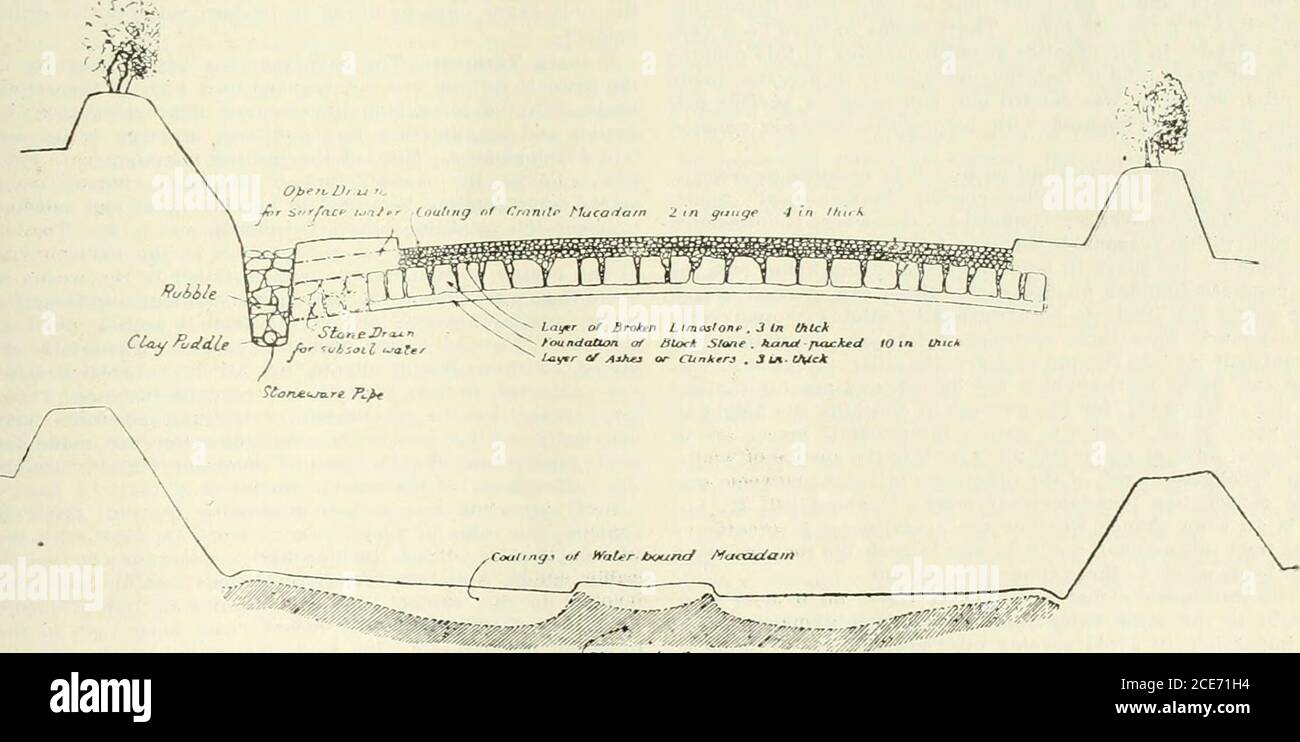 Open Drain
for surface water
Coating of Granite Macadam 2 in gauge 4 in thick
Rubble
Clay Puddle
Stone Drain
for subsoil water
Stoneware Pipe
Layer of Broken Limestone, 3 in thick
Foundation of Block Stone, hand-packed 10 in thick
Layer of Ashes or Clinkers, 3 in. thick
Coatings of Water-bound Macadam
alamy
alamy
alamy
Image ID: 2CE71H4
www.alamy.com